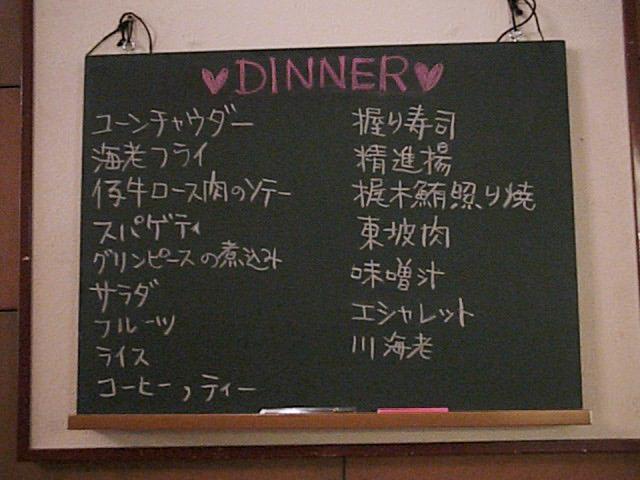 ♥DINNER♥
コーンチャウダー
海老フライ
仔牛ロース肉のソテー
スパゲティ
グリンピースの煮込み
サラダ
フルーツ
ライス
コーヒー,ティー
握り寿司
精進揚
梶木鮪照り焼
東坡肉
味噌汁
エシャレット
川海老